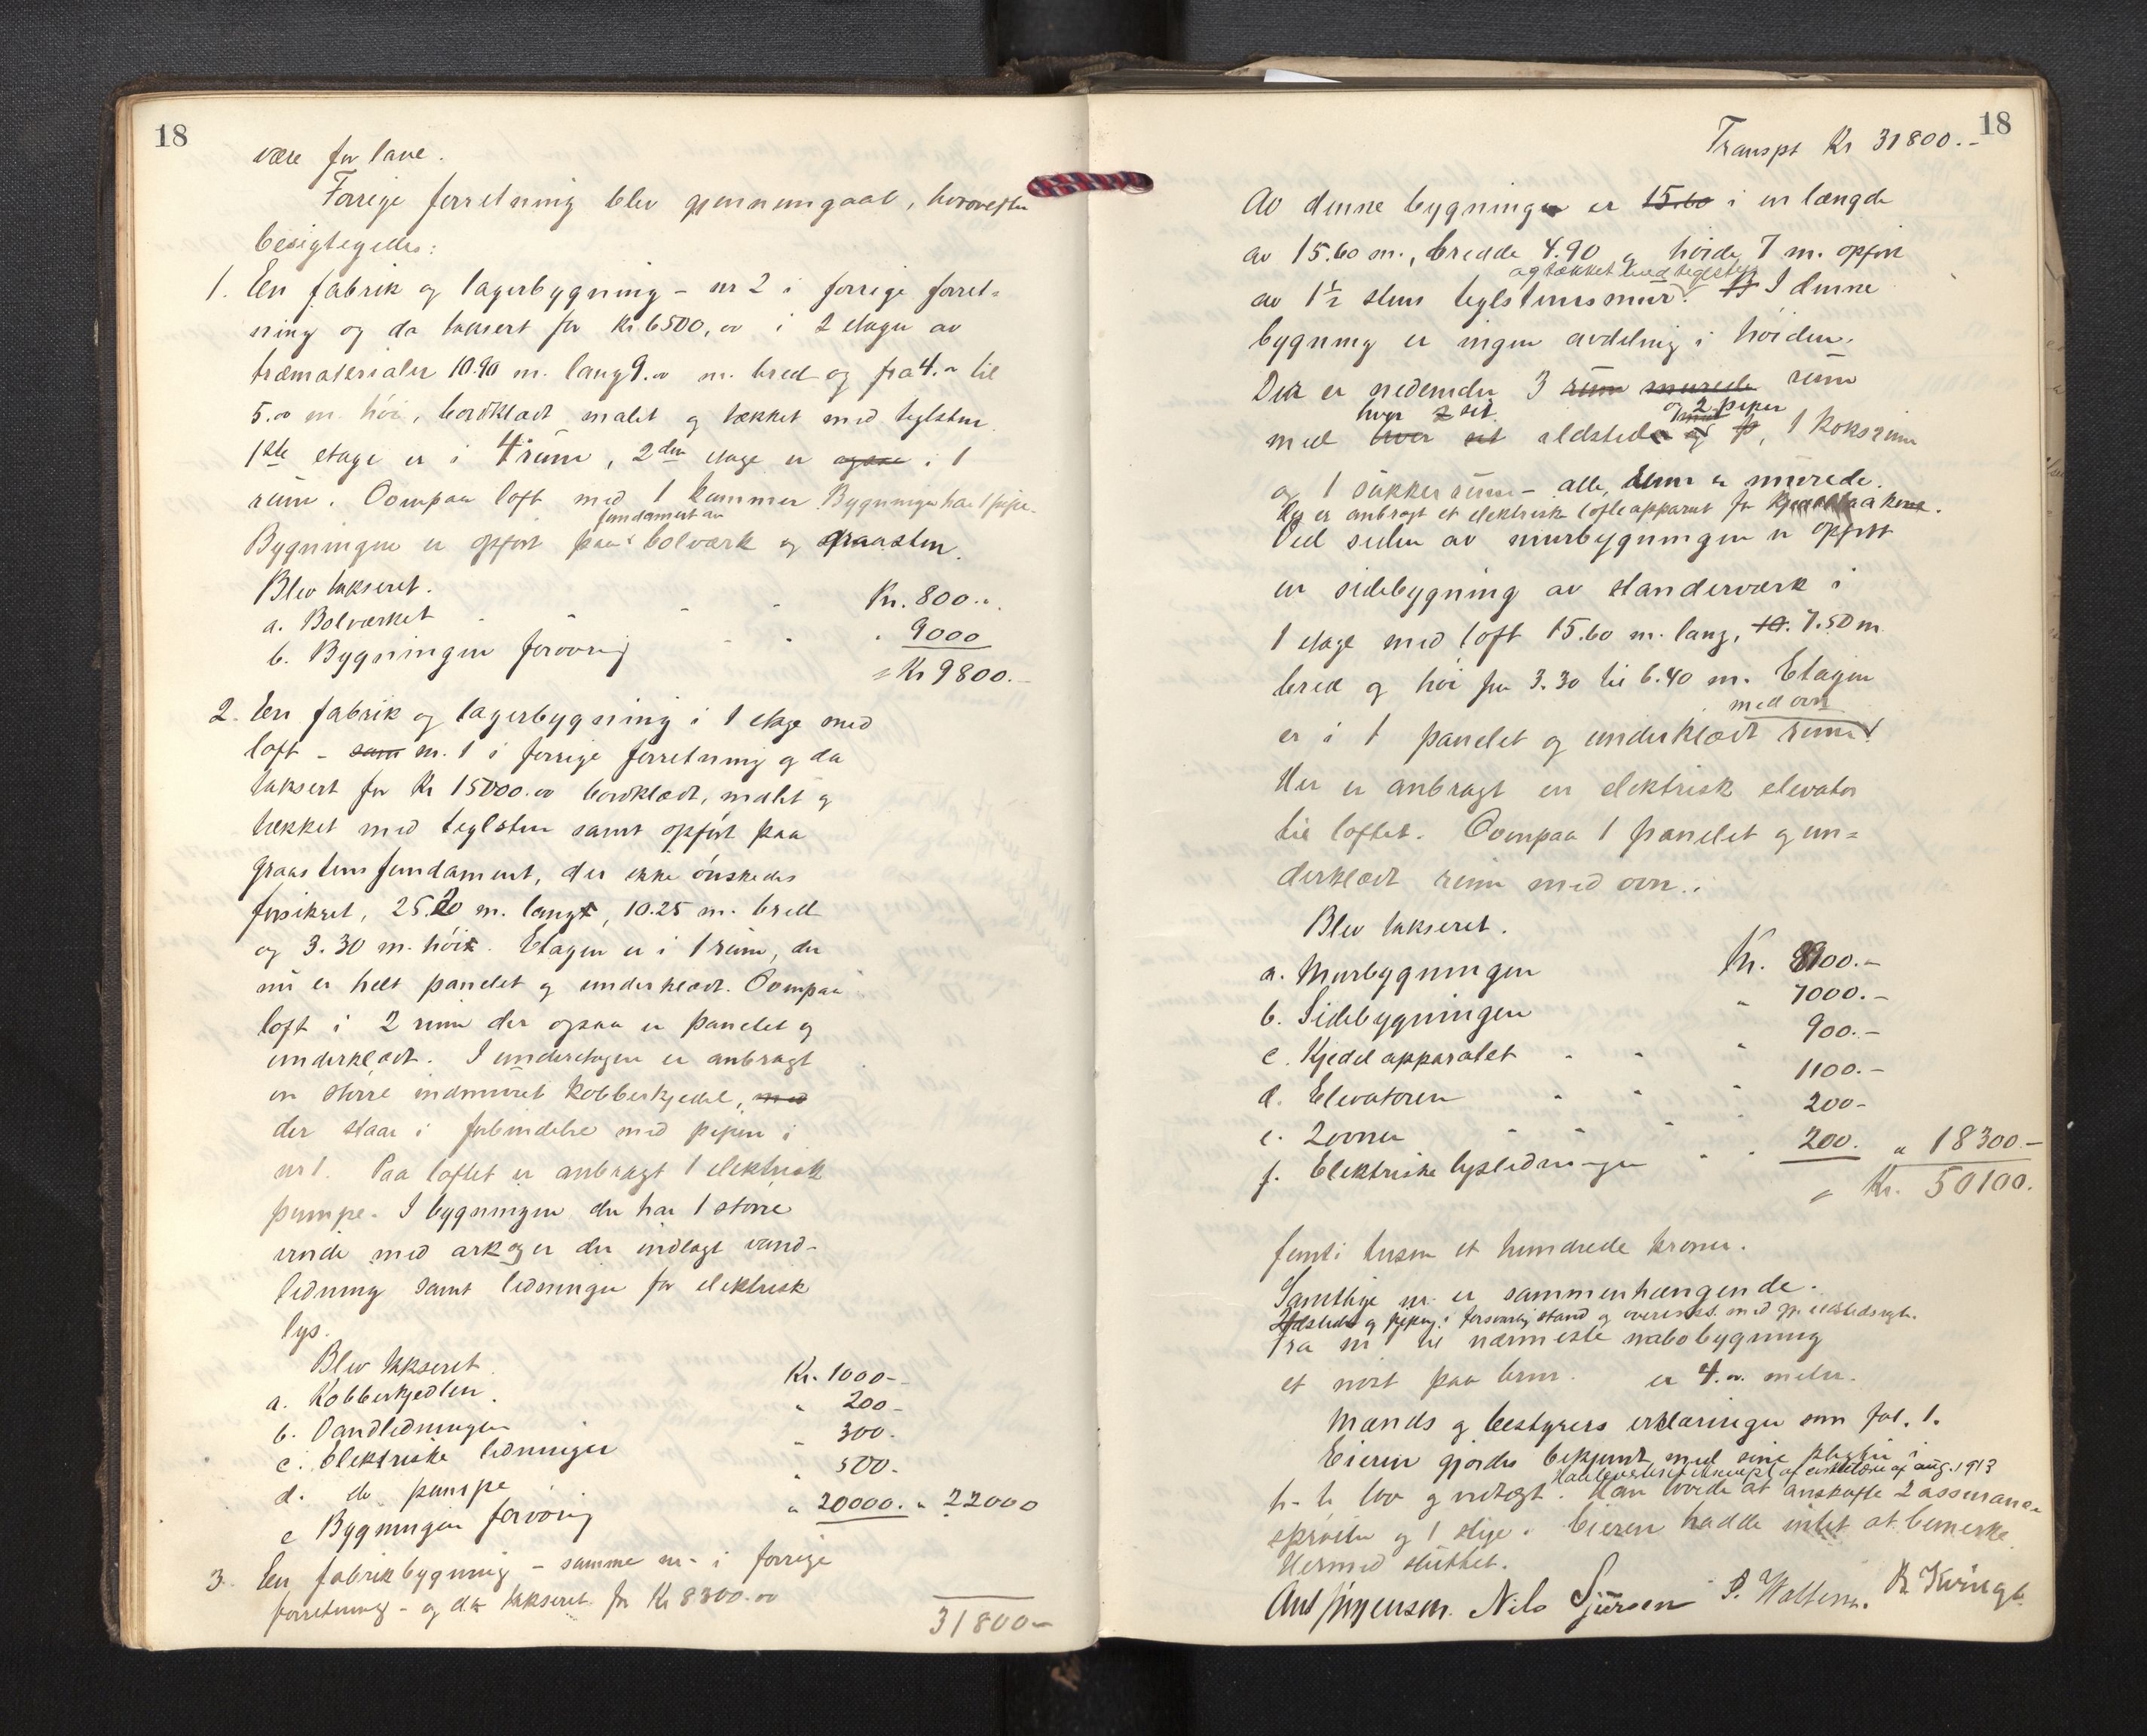 18
være for lave.
Forrige forretning blev gjennemgaat, hvorefter
besigtigedes:
1. En fabrik og lagerbygning - nr 2 i forrige forret=
ning og da taksert for kr. 6500,00 i 2 etager av
træmaterialer 10.90 m. lang 9.00 m. bred og fra 4.00 til
5.00 m. høi, bordklædt malet og tækket med teglsten
1ste etage er i 4 rum, 2den etage er ogsaa i 1
rum. Oompaa loft med 1 kammer. Bygningen har 1 pipe.
fundament av
Bygningen er opført paa bolværk og graasten.
Blev takseret.
a. Bolværket - - - - Kr. 800.-
b. Bygningen forøvrig - - " 9000
= Kr 9800.-
2. En fabrik og lagerbygning i 1 etage med
loft - som nr. 1 i forrige forretning og da
taksert for Kr 15000.00 bordklædt, malet og
tækket med teglsten samt opført paa
graastensfundament, der ikke ønskedes
forsikret, 25.20 m. lang, 10.25 m. bred
og 3.30 m. høi. Etagen er i 1 rum, der
nu er helt panelet og underklædt. Oompaa
loft i 2 rum der ogsaa er panelet og
underklædt. I underetagen er anbragt
en større indmuret kobberkjedel, med
der staar i forbindelse med pipen i
nr 1. Paa loftet er anbragt 1 elektrisk
pumpe. I bygningen der har 1 større
vinde med ark og er der indlagt vand-
ledning samt ledninger for elektrisk
lys.
Blev takseret
a. Kobberkjedlen. Kr. 1000-
b. Vandledningen " 200-
c. Elektriske ledninger " 300.
d. do pumpe " 500-
e Bygningen forøvrig " 20000. " 22000
3. En fabrikbygning - samme nr. i forrige
forretning - og da takseret for Kr 8300.00
31800-
18
Transpt Kr 31800.-
Av denne bygningen er 15.60 i en længde
av 15.60 m., bredde 4.90 og høide 7 m. opført
og tækket med teglsten
av 1½ stens teglstensmur. I denne
bygning er ingen avdeling i høiden.
Der er nedenunder 3 rum murede rum
hver sit og 2 piper
med hver sit ildsted og, 1 koksrum
og 1 sukkerrum - alle rum er murede.
Her er anbragt et elektrisk løfteapparat for
Ved siden av murbygningen er opført
en sidebygning av standerværk i
1 etage med loft 15.60 m. lang, 10. 7.50 m
bred og høi fra 3.30 til 6.40 m. Etagen
med ovn
er i 1 panelet og underklædt rum.
Her er anbragt en elektrisk elevator
til loftet. Oompaa 1 panelet og un=
derklædt rum med ovn.
Blev takseret.
a. Murbygningen Kr. 8900.-
b. Sidebygningen " 7000.-
c. Kjedelapparatet - - " 900.-
d. Elevatoren - - " 1100.-
e. 2 ovner - - - " 200-
f. Elektriske lysledninger - - 200. " 18300-
= Kr. 50100.
femti tusen et hundrede kroner.
Samtlige nr. er sammenhængende.
Ildsteder og piper i forsvarlig stand og overensst. med
Fra nr 1 til nærmeste nabobygning
et nøst paa brur. er 4.00 meter.
Mænds og bestyrers erklæringer som fol. 1.
Eieren gjordes bekjent med sine pligter i
Han leverte et eksempl. af cirkulære af aug. 1913
h. t. lov og vedtægt. Han lovede at anskaffe 2 assurance
sprøiter og 1 stige. Eieren hadde intet at bemerke.
Hermed sluttet.
Ant Jørgensen. Nils Sjursen P. Waltem. B. Kvinge.